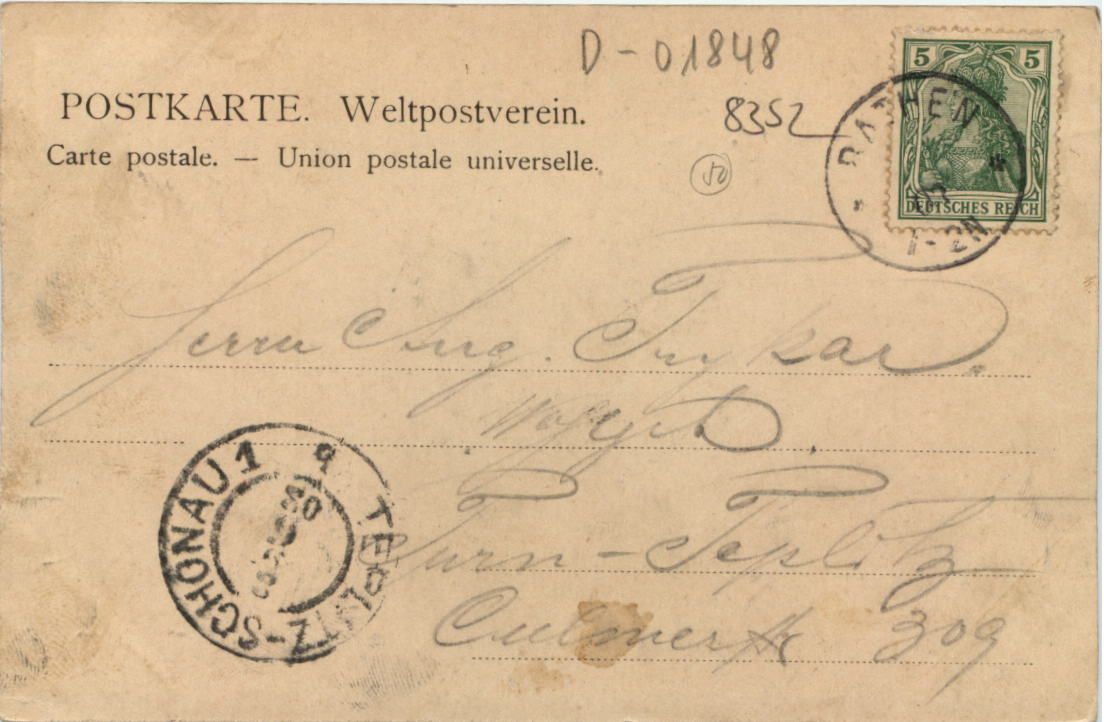 D-01848
5 5
POSTKARTE. Weltpostverein.
8352
Carte postale. — Union postale universelle.
50
RATHEN
DEUTSCHES REICH
1-2N
Herrn Aug.
Turn-Teplitz
TEPLITZ-SCHÖNAU 1
Culmerstr 309